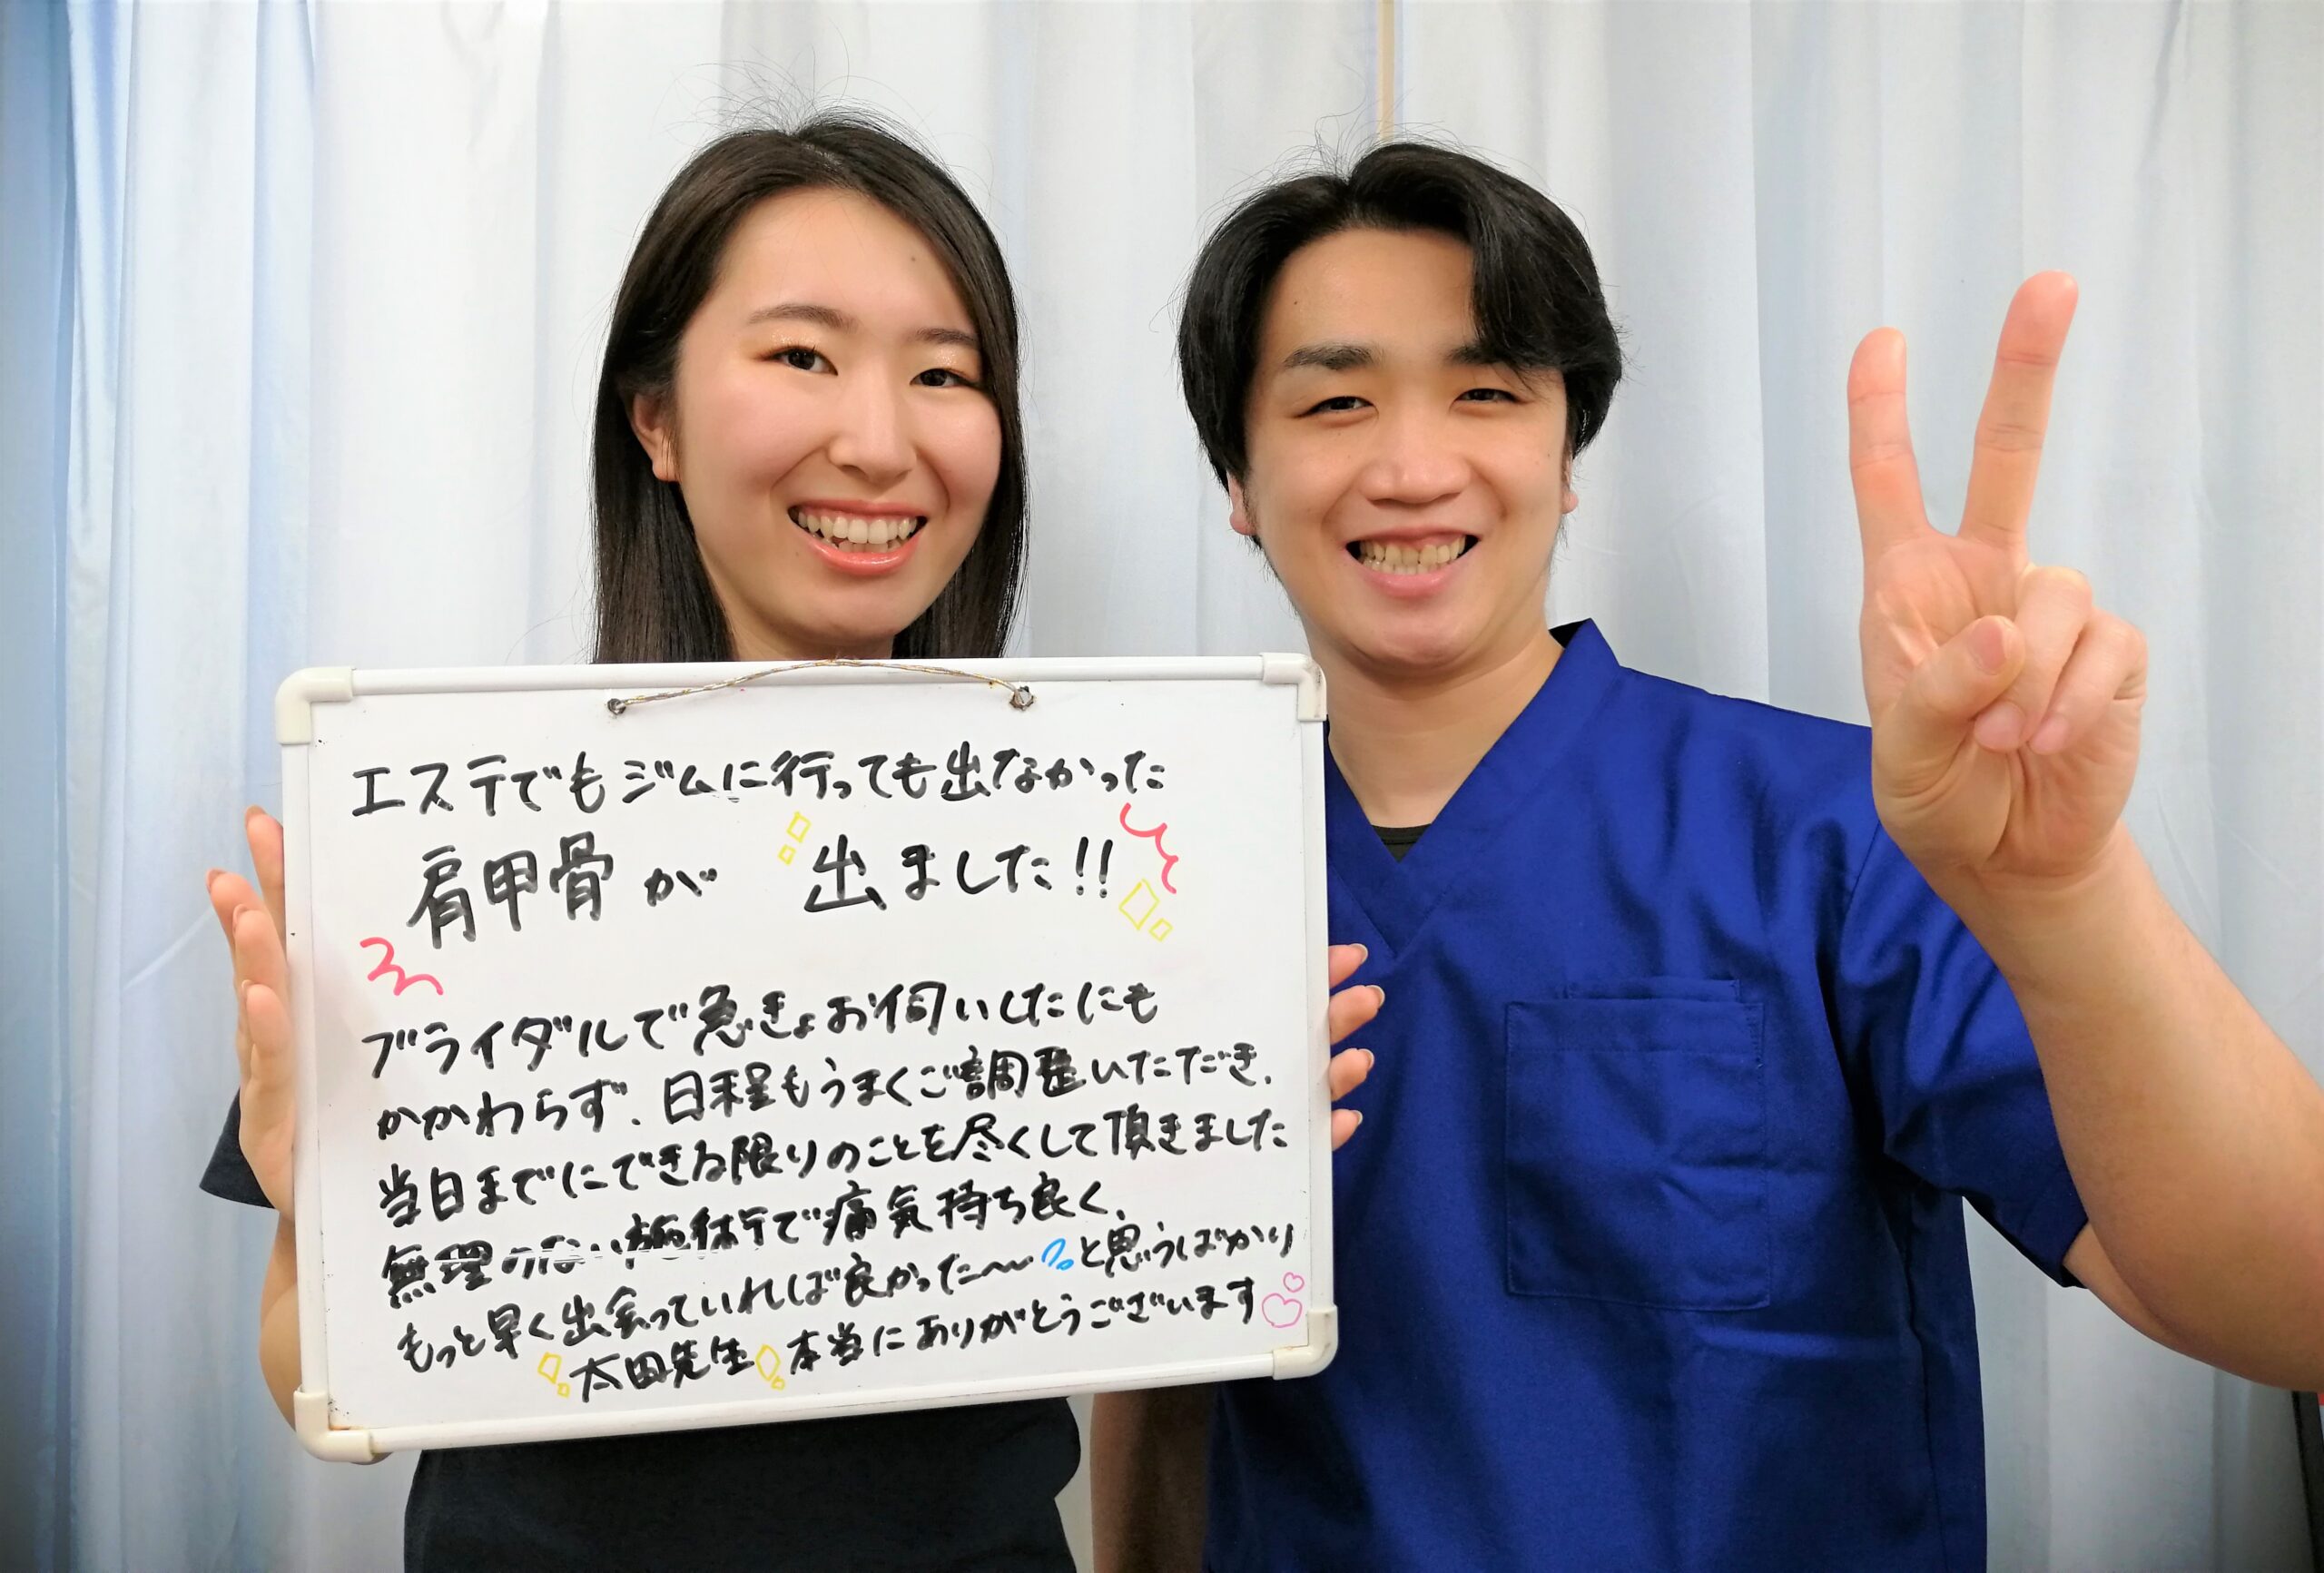 エステでもジムに行っても出なかった
肩甲骨が 出ました!!
ブライダルで急きょお伺いしたにも
かかわらず、日程もうまくご調整いただき、
当日までにできる限りのことを尽くして頂きました
無理のない施術で痛気持ち良く、
もっと早く出会っていれば良かった〜と思うばかり
太田先生 本当にありがとうございます